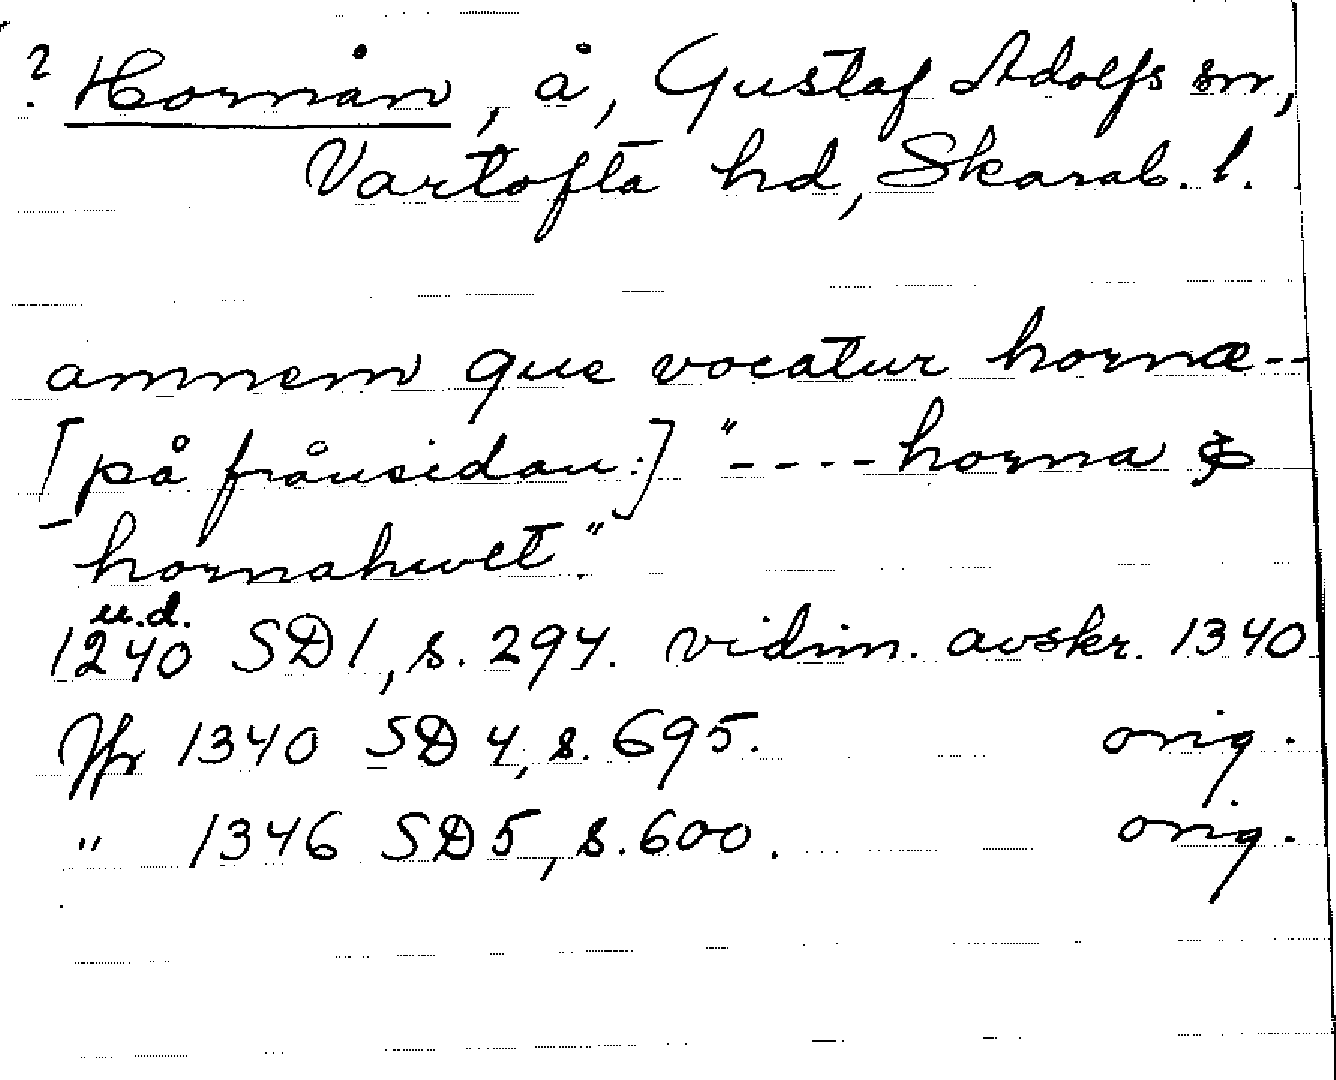 ? Hornån, å, Gustaf Adolfs sn,
Vartofta hd, Skarab. l.
amnem que vocatur hornæ--
[på frånsidan:] "----horna &
hornahwet."
u.d.
1240 SD 1, s. 294. vidim. avskr. 1340
Jfr 1340 SD 4, s. 695. orig.
" 1346 SD 5, s. 600. orig.